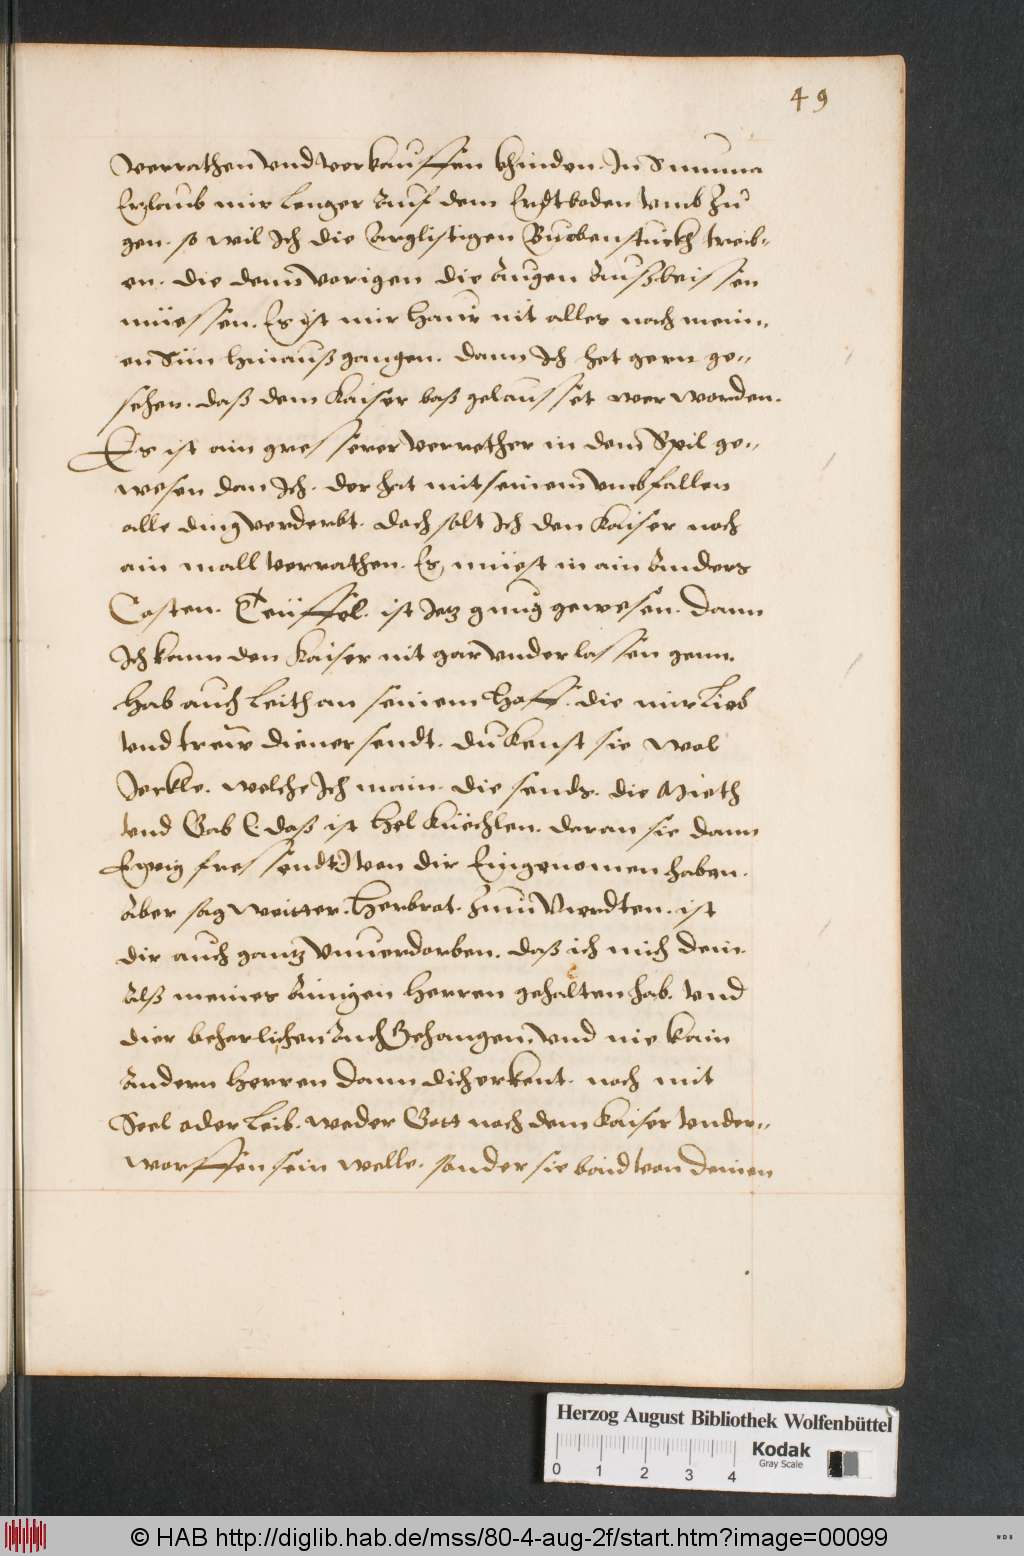 49
Verrathen Vnd Verkauffen khinden. In Summa
Erlaub mir lenger Auf dem Erdtboden vmb Zu
gen. so wil Ich die Arglistigen Buobenstuckh treib„
en. die dem Vorigen die Augen Außbeissen
müessen. Es ist mir haur nit alles nach mein„
en Sün hinauß gangen. dann Ich het gern ge„
sehen. daß dem Kaiser baß gelausset wer worden.
Es ist ain gresserer Verrether in dem Spil ge„
wesen dan Ich. der hat mit seinem vmbfallen
alle ding verderbt. doch solt Ich den Kaiser noch
ain mall verrathen. Es müest in ain Anders
Casten. Teüffel. ist Ietz gnug gewesen. dann
Ich kann den Kaiser nit gar vnderlassen genn.
hab auch leith an seinem Hoff. die mir lieb
vnd trew diener sendt. du kenst sie wol
Jerkle. welche Ich main. die sends. die Mieth
vnd Gab (: daß ist Hel Küechlen. daran sie dann
Ewig fressendt :) von dir Eingenomen haben.
Aber sag weitter. Herbrot. Zum Vierdten. ist
dir auch gantz Vnuerdorben. daß ich mich dein.
Alß meines Ainigen herren gehalten hab. vnd
dier beherlichen Auch gehangem Vnd nie kain
Andern herren dann dich erkent. noch mit
Seel oder leib. weder Gott noch dem Kaiser vnder„
worffen sein welle. sonder sie baid von deinen
Herzog August Bibliothek Wolfenbüttel
Kodak
Gray Scale
0 1 2 3 4
© HAB http://diglib.hab.de/mss/80-4-aug-2f/start.htm?image=00099